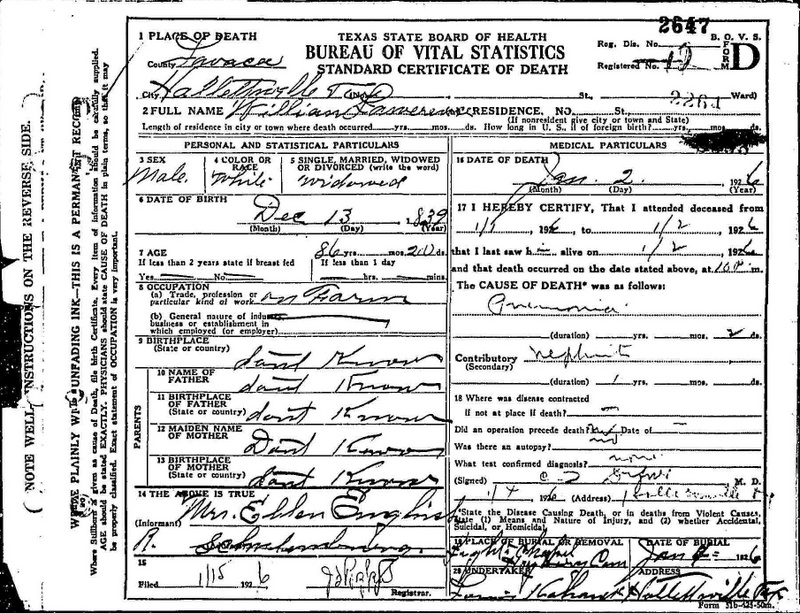 2647
1 PLACE OF DEATH
TEXAS STATE BOARD OF HEALTH
BUREAU OF VITAL STATISTICS
STANDARD CERTIFICATE OF DEATH
B. O. V. S.
FORM D
Reg. Dis. No.
Registered No.
County Lavaca
City Hallettsville (No. St., Ward)
2264
2 FULL NAME William Lawerence RESIDENCE, NO. St.
(If nonresident give city or town and State)
Length of residence in city or town where death occurred yrs. mos. ds. How long in U. S. if of foreign birth? yrs. mos. ds.
PERSONAL AND STATISTICAL PARTICULARS
3 SEX
Male.
4 COLOR OR RACE
White
5 SINGLE, MARRIED, WIDOWED OR DIVORCED (write the word)
widowed
6 DATE OF BIRTH
Dec 13 1839
(Month) (Day) (Year)
7 AGE
86 yrs. mos. 20 ds.
If less than 2 years state if breast fed
If less than 1 day
Yes No hrs. mins.
8 OCCUPATION
(a) Trade, profession or particular kind of work on Farm
(b) General nature of industry business or establishment in which employed (or employer)
9 BIRTHPLACE
(State or country) dont Know
PARENTS
10 NAME OF FATHER dont Know
11 BIRTHPLACE OF FATHER
(State or country) dont Know
12 MAIDEN NAME OF MOTHER Dont Know
13 BIRTHPLACE OF MOTHER
(State or country) dont Know
14 THE ABOVE IS TRUE
(Informant) Mrs. Ellen English
R.
15
Filed 1/15 1926
Registrar.
MEDICAL PARTICULARS
16 DATE OF DEATH
Jan. 2. 1926
(Month) (Day) (Year)
17 I HEREBY CERTIFY, That I attended deceased from
1/1 1926, to 1/2 1926
that I last saw h alive on 1/2 1926
and that death occurred on the date stated above, at m.
The CAUSE OF DEATH* was as follows:
Pneumonia
(duration) yrs. mos. 2 ds.
Contributory
(Secondary)
(duration) 1 yrs. mos. ds.
18 Where was disease contracted
If not at place of death?
Did an operation precede death? Date of
Was there an autopsy? no
What test confirmed diagnosis? none
(Signed) M. D.
1/4 1926 (Address)
*State the Disease Causing Death, or in deaths from Violent Causes, state (1) Means and Nature of Injury, and (2) whether Accidental, Suicidal, or Homicidal.
19 PLACE OF BURIAL OR REMOVAL
DATE OF BURIAL
Jan 1926
20 UNDERTAKER
ADDRESS
Hallettsville Tex
Form 51b-425-50m.
( NOTE WELL INSTRUCTIONS ON THE REVERSE SIDE. )
WRITE PLAINLY WITH UNFADING INK—THIS IS A PERMANENT RECORD
Where Stillborn is given as cause of Death, file birth Certificate. Every item of information should be carefully supplied.
AGE should be stated EXACTLY. PHYSICIANS should state CAUSE OF DEATH in plain terms, so that it may
be properly classified. Exact statement of OCCUPATION is very important.